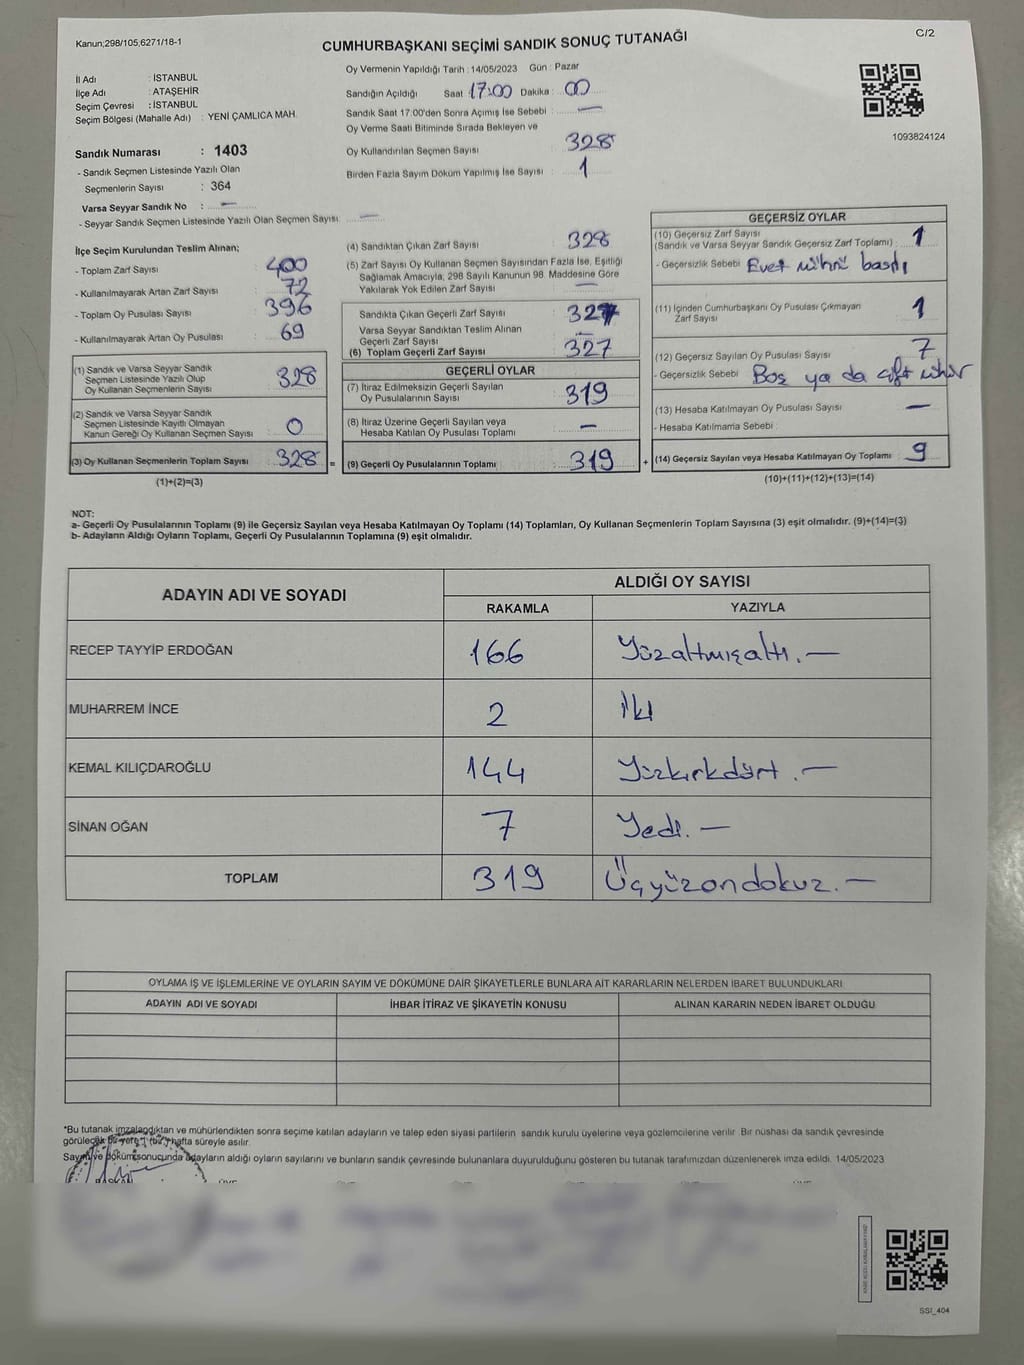 Kanun;298/105,6271/18-1
C/2
CUMHURBAŞKANI SEÇİMİ SANDIK SONUÇ TUTANAĞI
İl Adı : İSTANBUL
İlçe Adı : ATAŞEHİR
Seçim Çevresi : İSTANBUL
Seçim Bölgesi (Mahalle Adı) : YENİ ÇAMLICA MAH.
Sandık Numarası : 1403
- Sandık Seçmen Listesinde Yazılı Olan
Seçmenlerin Sayısı : 364
Varsa Seyyar Sandık No : —
- Seyyar Sandık Seçmen Listesinde Yazılı Olan Seçmen Sayısı : —
Oy Vermenin Yapıldığı Tarih : 14/05/2023 Gün : Pazar
Sandığın Açıldığı Saat : 17:00 Dakika : 00
Sandık Saat 17.00'den Sonra Açımış İse Sebebi : —
Oy Verme Saati Bitiminde Sırada Bekleyen ve
Oy Kullandırılan Seçmen Sayısı : 328
Birden Fazla Sayım Döküm Yapılmış İse Sayısı : 1
1093824124
İlçe Seçim Kurulundan Teslim Alınan;
- Toplam Zarf Sayısı : 400
- Kullanılmayarak Artan Zarf Sayısı : 72
- Toplam Oy Pusulası Sayısı : 396
- Kullanılmayarak Artan Oy Pusulası : 69
(1) Sandık ve Varsa Seyyar Sandık
Seçmen Listesinde Yazılı Olup
Oy Kullanan Seçmenlerin Sayısı : 328
(2) Sandık ve Varsa Seyyar Sandık
Seçmen Listesinde Kayıtlı Olmayan
Kanun Gereği Oy Kullanan Seçmen Sayısı : 0
(3) Oy Kullanan Seçmenlerin Toplam Sayısı : 328 =
(1)+(2)=(3)
(4) Sandıktan Çıkan Zarf Sayısı : 328
(5) Zarf Sayısı Oy Kullanan Seçmen Sayısından Fazla İse, Eşitliği
Sağlamak Amacıyla, 298 Sayılı Kanunun 98. Maddesine Göre
Yakılarak Yok Edilen Zarf Sayısı : —
Sandıkta Çıkan Geçerli Zarf Sayısı : 327
Varsa Seyyar Sandıktan Teslim Alınan
Geçerli Zarf Sayısı : —
(6) Toplam Geçerli Zarf Sayısı : 327
GEÇERLİ OYLAR
(7) İtiraz Edilmeksizin Geçerli Sayılan
Oy Pusulalarının Sayısı : 319
(8) İtiraz Üzerine Geçerli Sayılan veya
Hesaba Katılan Oy Pusulası Toplamı : —
(9) Geçerli Oy Pusulalarının Toplamı : 319 +
GEÇERSİZ OYLAR
(10) Geçersiz Zarf Sayısı
(Sandık ve Varsa Seyyar Sandık Geçersiz Zarf Toplamı) : 1
- Geçersizlik Sebebi : Evet mührü basdı
(11) İçinden Cumhurbaşkanı Oy Pusulası Çıkmayan
Zarf Sayısı : 1
(12) Geçersiz Sayılan Oy Pusulası Sayısı : 7
- Geçersizlik Sebebi : Boş ya da çift mühür
(13) Hesaba Katılmayan Oy Pusulası Sayısı : —
- Hesaba Katılmama Sebebi :
(14) Geçersiz Sayılan veya Hesaba Katılmayan Oy Toplamı : 9
(10)+(11)+(12)+(13)=(14)
NOT:
a- Geçerli Oy Pusulalarının Toplamı (9) ile Geçersiz Sayılan veya Hesaba Katılmayan Oy Toplamı (14) Toplamları, Oy Kullanan Seçmenlerin Toplam Sayısına (3) eşit olmalıdır. (9)+(14)=(3)
b- Adayların Aldığı Oyların Toplamı, Geçerli Oy Pusulalarının Toplamına (9) eşit olmalıdır.
ADAYIN ADI VE SOYADI
ALDIĞI OY SAYISI
RAKAMLA YAZIYLA
RECEP TAYYİP ERDOĞAN 166 Yüzaltmışaltı. —
MUHARREM İNCE 2 İki
KEMAL KILIÇDAROĞLU 144 Yüzkırkdört. —
SİNAN OĞAN 7 Yedi. —
TOPLAM 319 Üçyüzondokuz. —
OYLAMA İŞ VE İŞLEMLERİNE VE OYLARIN SAYIM VE DÖKÜMÜNE DAİR ŞİKAYETLERLE BUNLARA AİT KARARLARIN NELERDEN İBARET BULUNDUKLARI
ADAYIN ADI VE SOYADI İHBAR İTİRAZ VE ŞİKAYETİN KONUSU ALINAN KARARIN NEDEN İBARET OLDUĞU
*Bu tutanak imzalandıktan ve mühürlendikten sonra seçime katılan adayların ve talep eden siyasi partilerin sandık kurulu üyelerine veya gözlemcilerine verilir. Bir nüshası da sandık çevresinde
görülecek bir yere 1 (bir) hafta süreyle asılır.
Sayım ve döküm sonucunda adayların aldığı oyların sayılarını ve bunların sandık çevresinde bulunanlara duyurulduğunu gösteren bu tutanak tarafımızdan düzenlenerek imza edildi. 14/05/2023
SSI_404